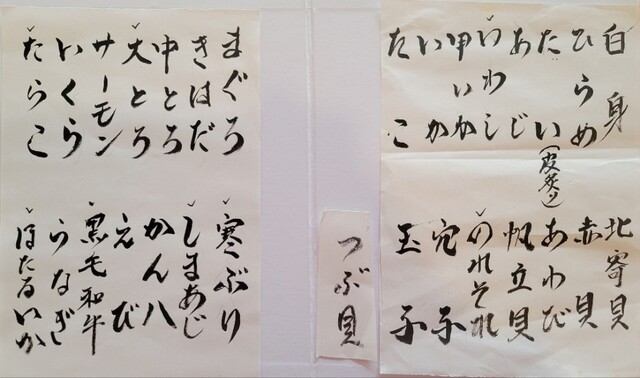 白身
ひらめ
たい(皮炙り)
あじ
いわし
甲いか
いか
たこ
北寄貝
赤貝
あわび
帆立貝
のれそれ
穴子
玉子
つぶ貝
まぐろ
きはだ
中とろ
大とろ
サーモン
いくら
たらこ
寒ぶり
しまあじ
かん八
えび
黒毛和牛
うなぎ
ほたるいか